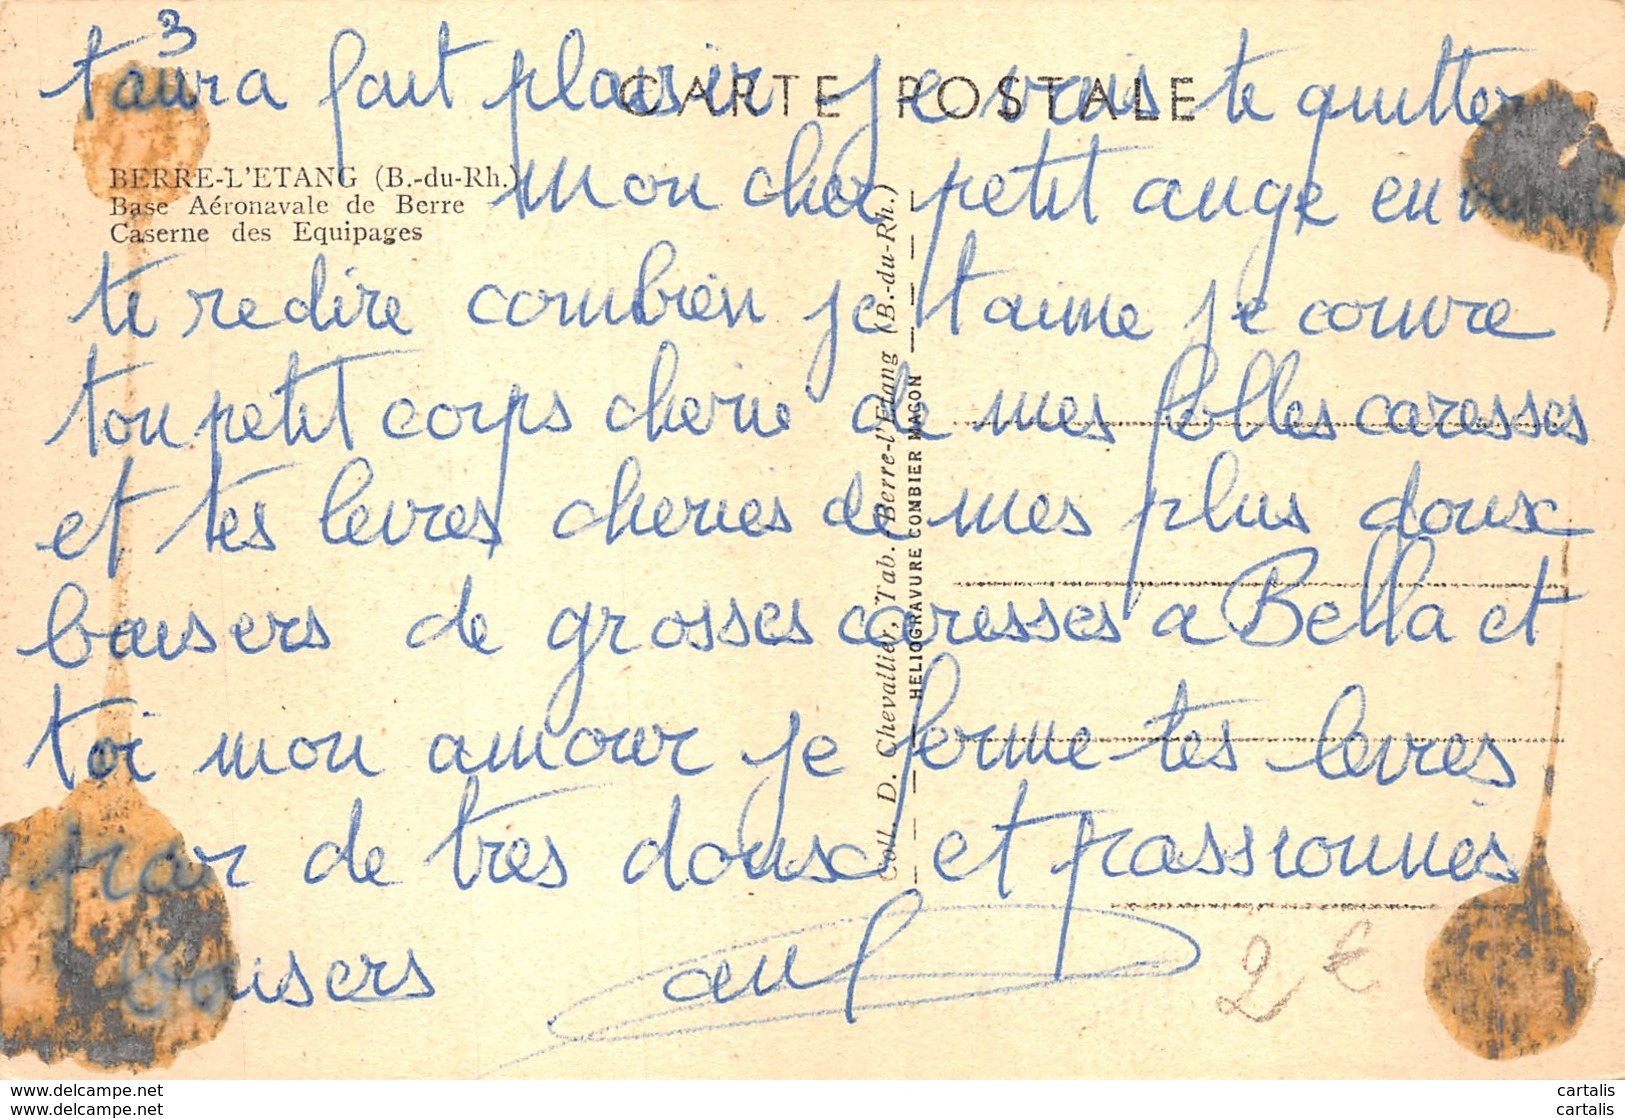 3
t'aura fait plaisir je vais te quitter
CARTE POSTALE
BERRE-L'ETANG (B.-du-Rh.)
Base Aéronavale de Berre
Caserne des Equipages
mon cher petit ange en
te redire combien je t'aime je couvre
ton petit corps cherie de mes folles caresses
et tes levres cheries de mes plus doux
baisers de grosses caresses a Bella et
toi mon amour je ferme tes levres
par de tres doux et passionnés
baisers
Coll. D. Chevallier, Tab. Berre-l'Etang (B.-du-Rh.)
HELIOGRAVURE COMBIER MACON
2 €
www.delcampe.net
www.delcampe.net
cartalis
cartalis